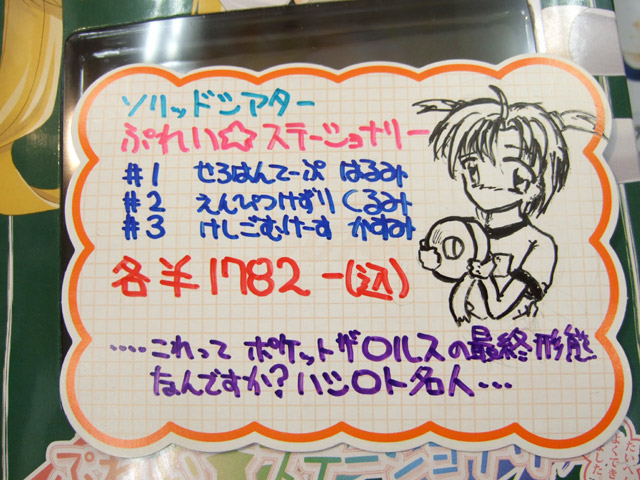 ソリッドシアター
ぷれい☆ステーショナリー
#1 せろはんてーぷ はるみ
#2 えんぴつけずり くるみ
#3 けしごむけーす かすみ
各¥1782-(込)
‥‥これって ポケットザ〇ルスの最終形態
なんですか?ハシ〇ト名人‥‥